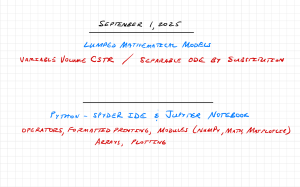 SEPTEMBER 1, 2025
LUMPED MATHEMATICAL MODELS
VARIABLE VOLUME CSTR / SEPARABLE ODE BY SUBSTITUTION
PYTHON - SPYDER IDE & JUPYTER NOTEBOOK
OPERATORS, FORMATTED PRINTING, MODULES (NUMPY, MATH, MATPLOTLIB)
ARRAYS, PLOTTING